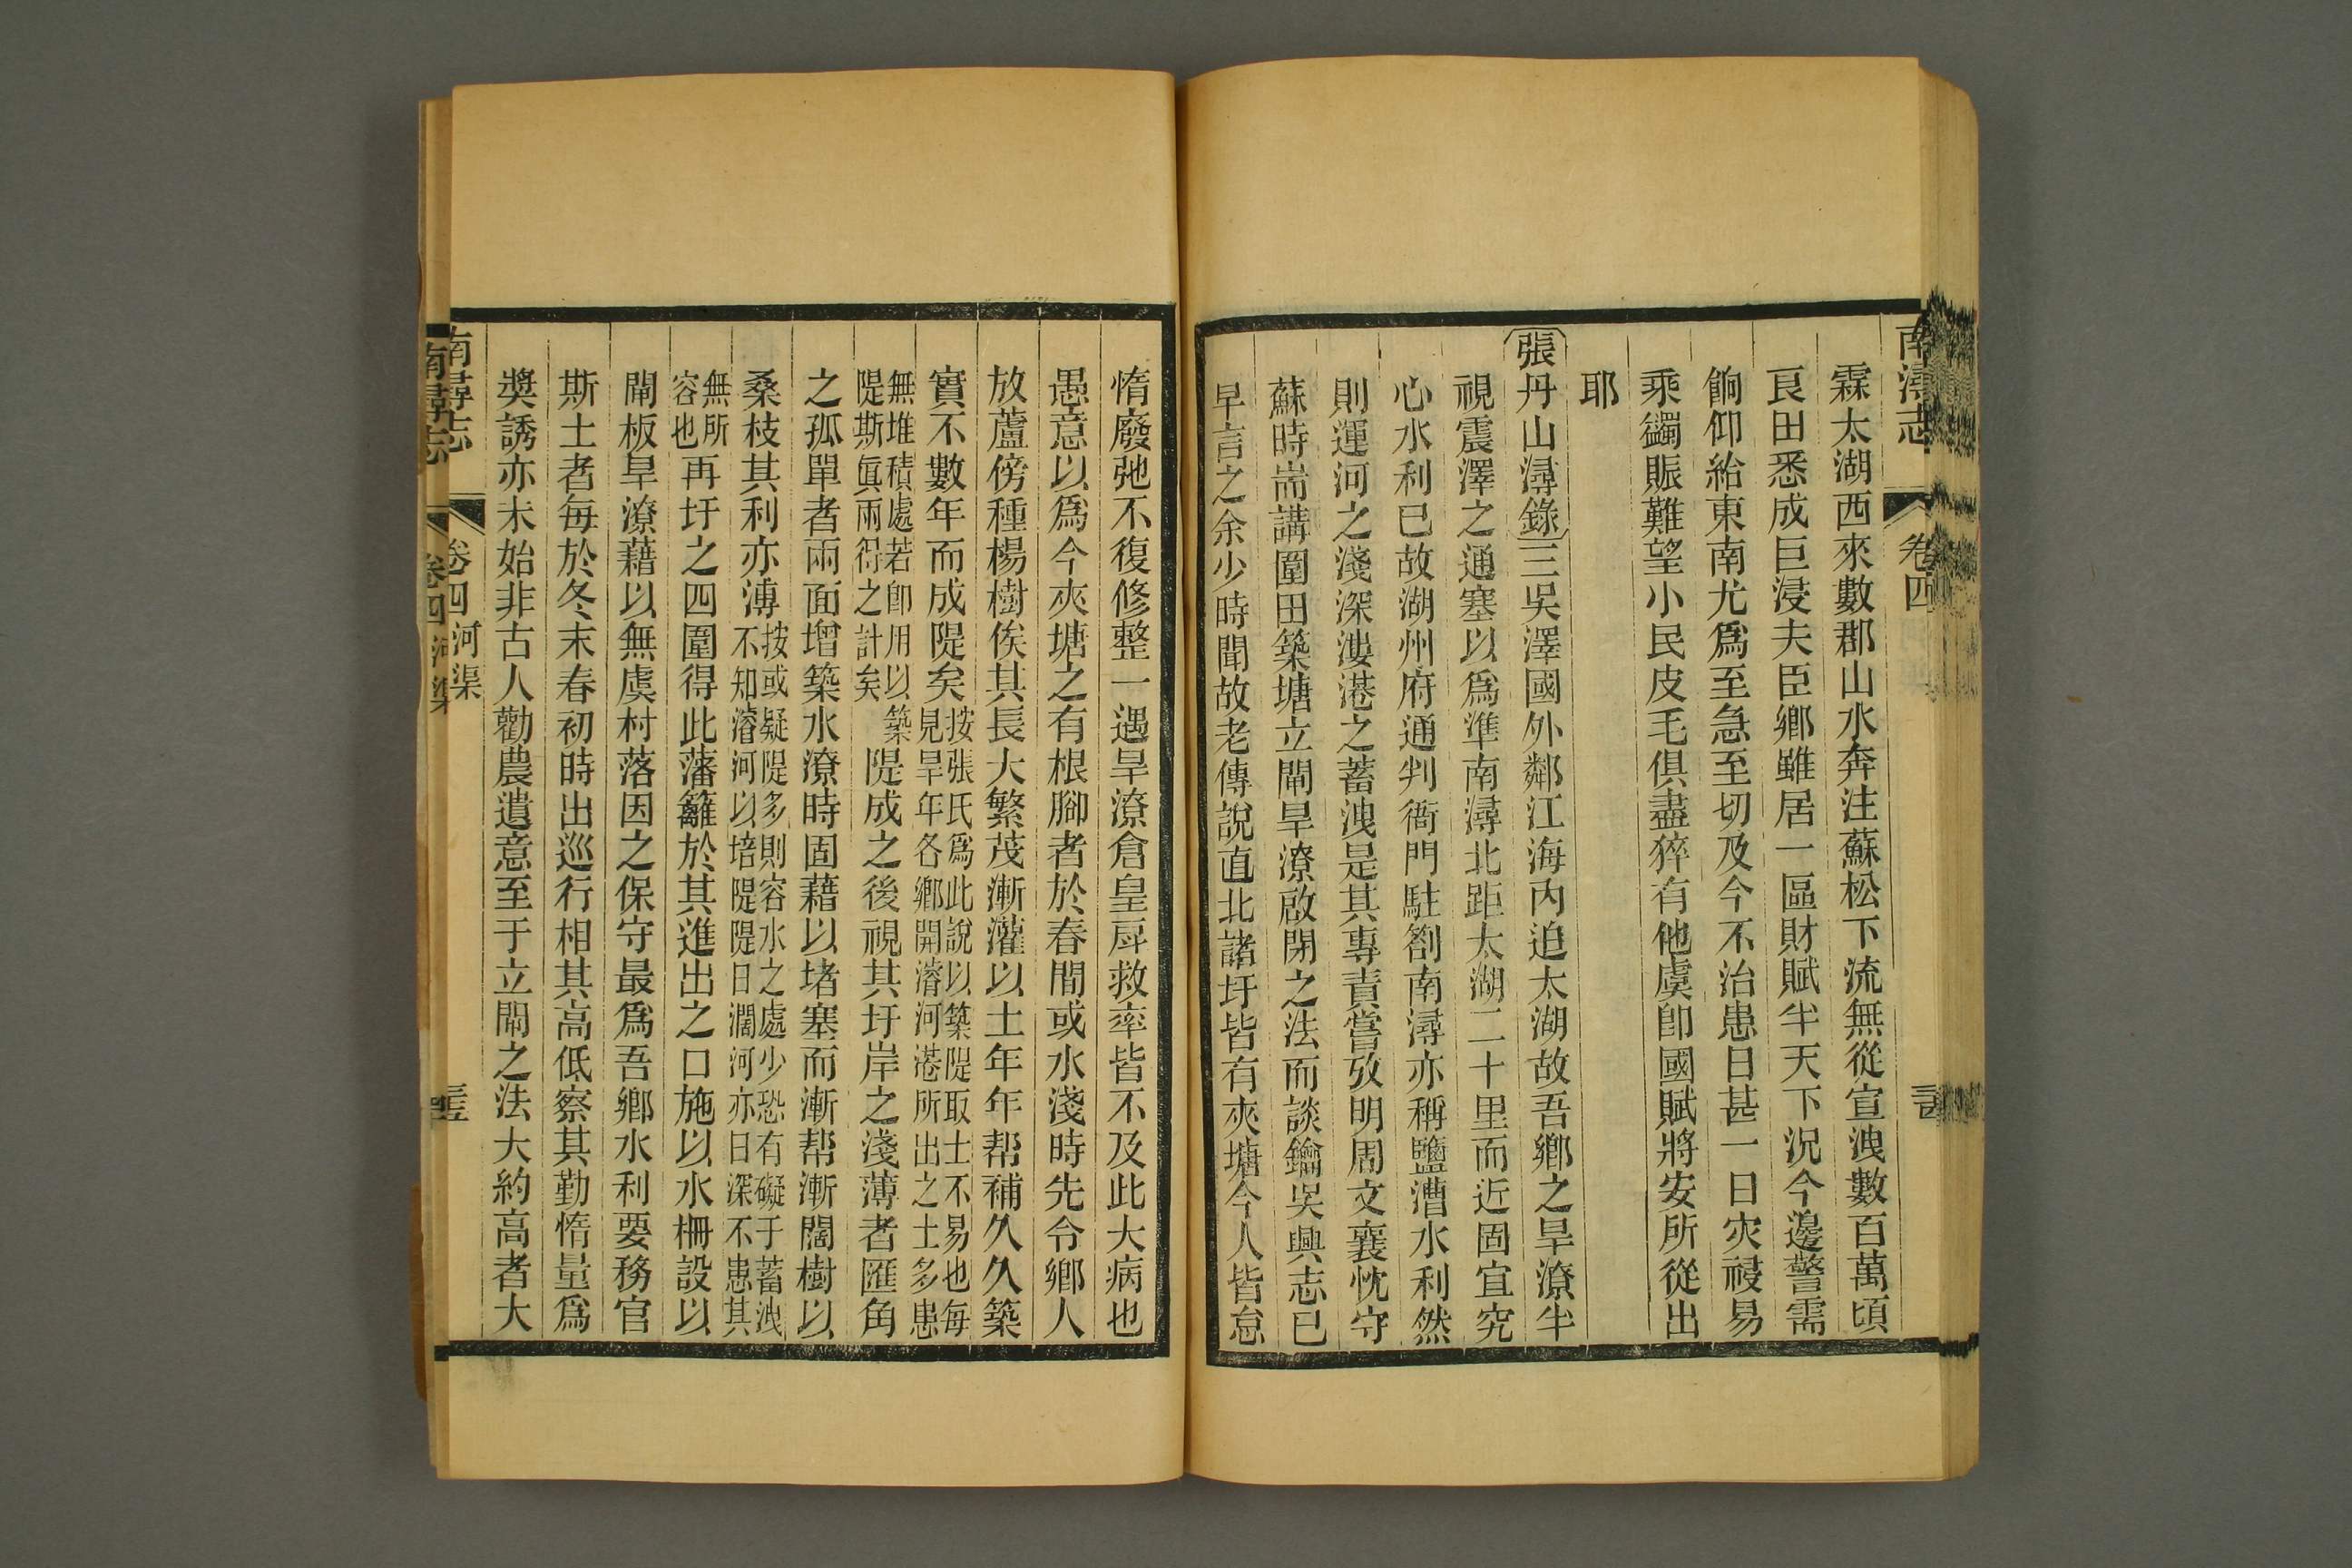 南潯志
卷四
霖太湖西來數郡山水奔注蘇松下流無從宣洩數百萬頃
良田悉成巨浸夫臣鄉雖居一區財賦半天下況今邊警需
餉仰給東南尤爲至急至切及今不治患日甚一日灾祲易
乘蠲賑難望小民皮毛俱盡猝有他虞卽國賦將安所從出
耶
張丹山潯錄三吳澤國外鄰江海内迫太湖故吾鄉之旱潦半
視震澤之通塞以爲準南潯北距太湖二十里而近固宜究
心水利已故湖州府通判衙門駐劄南潯亦稱鹽漕水利然
則運河之淺深漊港之蓄洩是其專責嘗攷明周文襄忱守
蘇時耑講圍田築塘立閘旱潦啟閉之法而談鑰吳興志已
早言之余少時聞故老傳說直北諸圩皆有夾塘今人皆怠
惰廢弛不復修整一遇旱潦倉皇戽救率皆不及此大病也
愚意以爲今夾塘之有根腳者於春間或水淺時先令鄉人
放蘆傍種楊樹俟其長大繁茂漸灌以土年年帮補久久築
實不數年而成隄矣按張氏爲此說以築隄取土不易也每
見旱年各鄉開濬河港所出之土多患
無堆積處若卽用以築
隄斯眞兩得之計矣隄成之後視其圩岸之淺薄者匯角
之孤單者兩面增築水潦時固藉以堵塞而漸帮漸闊樹以
桑枝其利亦溥按或疑隄多則容水之處少恐有礙于蓄洩
不知濬河以培隄隄日濶河亦日深不患其
無所
容也再圩之四圍得此藩籬於其進出之口施以水柵設以
閘板旱潦藉以無虞村落因之保守最爲吾鄉水利要務官
斯土者每於冬末春初時出巡行相其高低察其勤惰量爲
奬誘亦未始非古人勸農遺意至于立閘之法大約高者大
南潯志
卷四
河渠